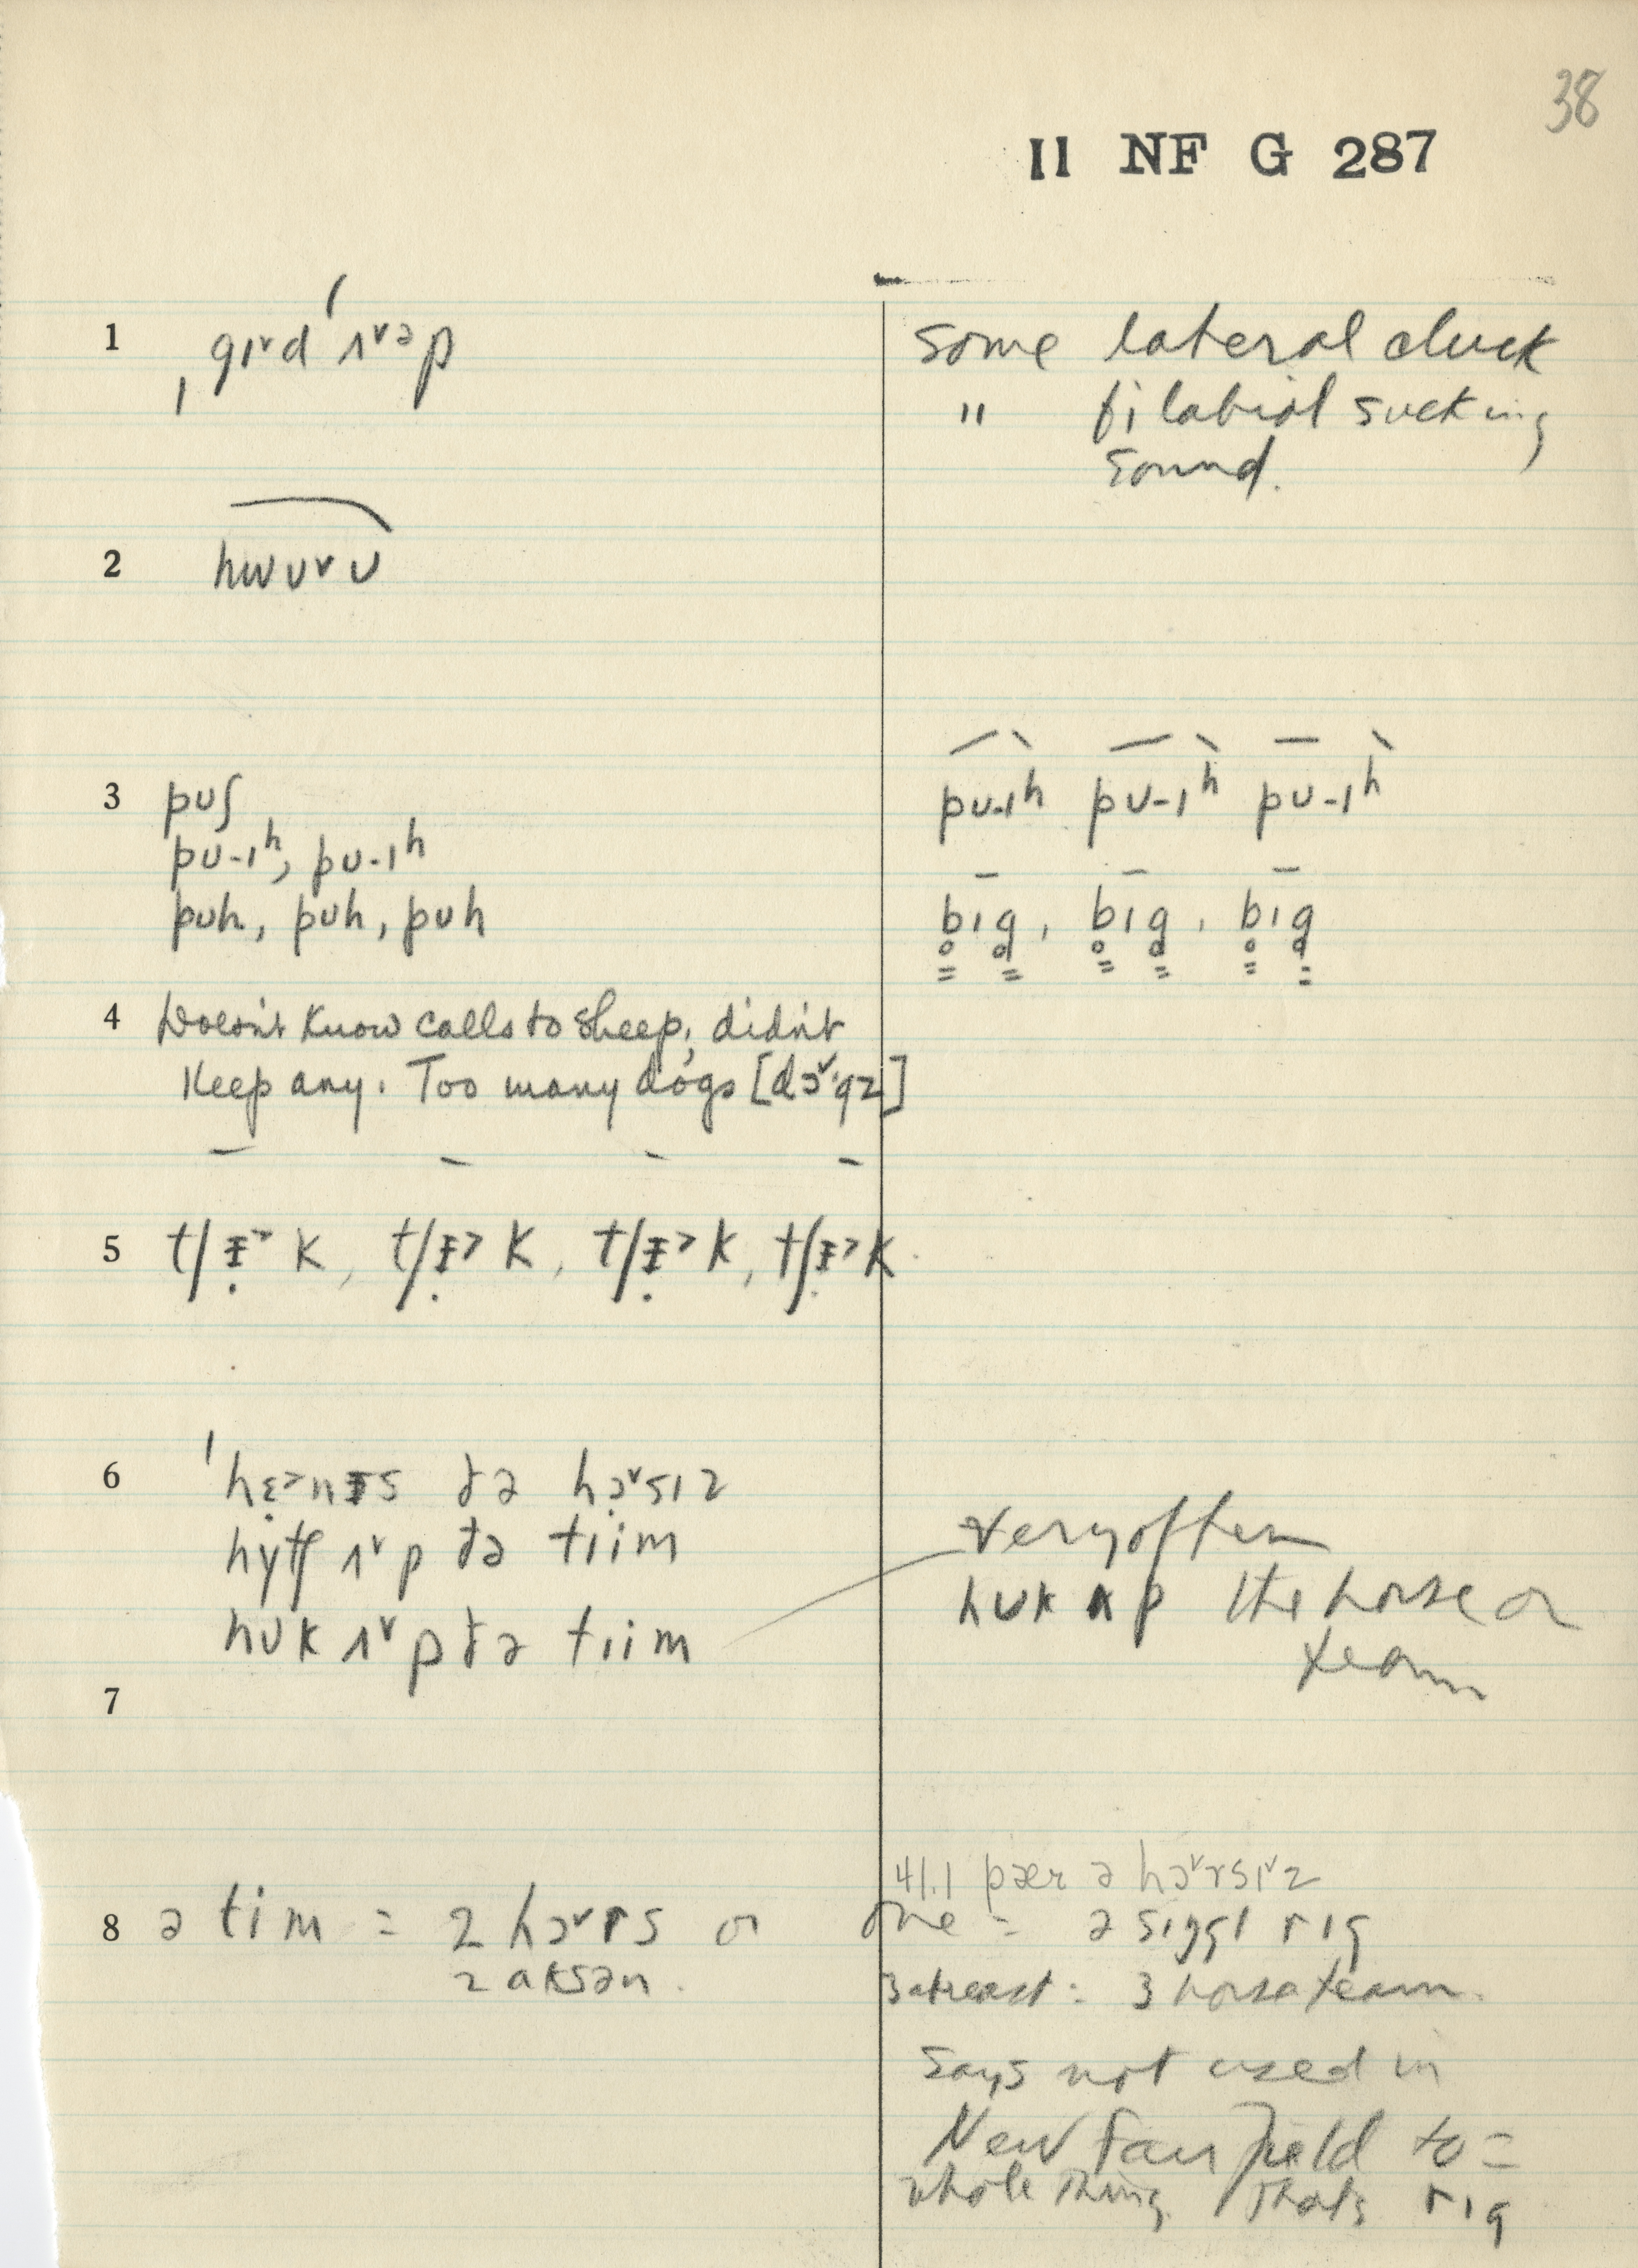 38
II NF G 287
1 ˌgɪ˅d ˈʌ˅əp
some lateral cluck
" bilabial sucking
sound.
2 hwʊ˅ʊ
3 pʊʃ
pʊ-ɪʰ, pʊ-ɪʰ
pʊh, pʊh, pʊh
pʊ-ɪʰ pʊ-ɪʰ pʊ-ɪʰ
b̥ɪg̥, b̥ɪg̥, b̥ɪg̥
4 Doesn't know calls to sheep, didn't
keep any. Too many dogs [dɔ˅·gz]
5 tʃᵻ̣˃k, tʃᵻ̣˃k, tʃᵻ̣˃k, tʃᵻ̣˃k.
6 ˈhɛ̣˃nᵻs ðə hɔ̣˅sɪz
hytʃ ʌ˅p ðə tɪim
hʊk ʌ˅p ðə tɪim
very often
hʊk ʌp the horse or
team
7
8 ə tim = 2 hɔ˅rs or
2 aksən.
41.1 pær ə hɔ˅rsɪ˅z
one = ə sɪŋgl rɪg
3 abreast: 3 horse team.
says not used in
New Fairfield to =
whole thing thats rɪg